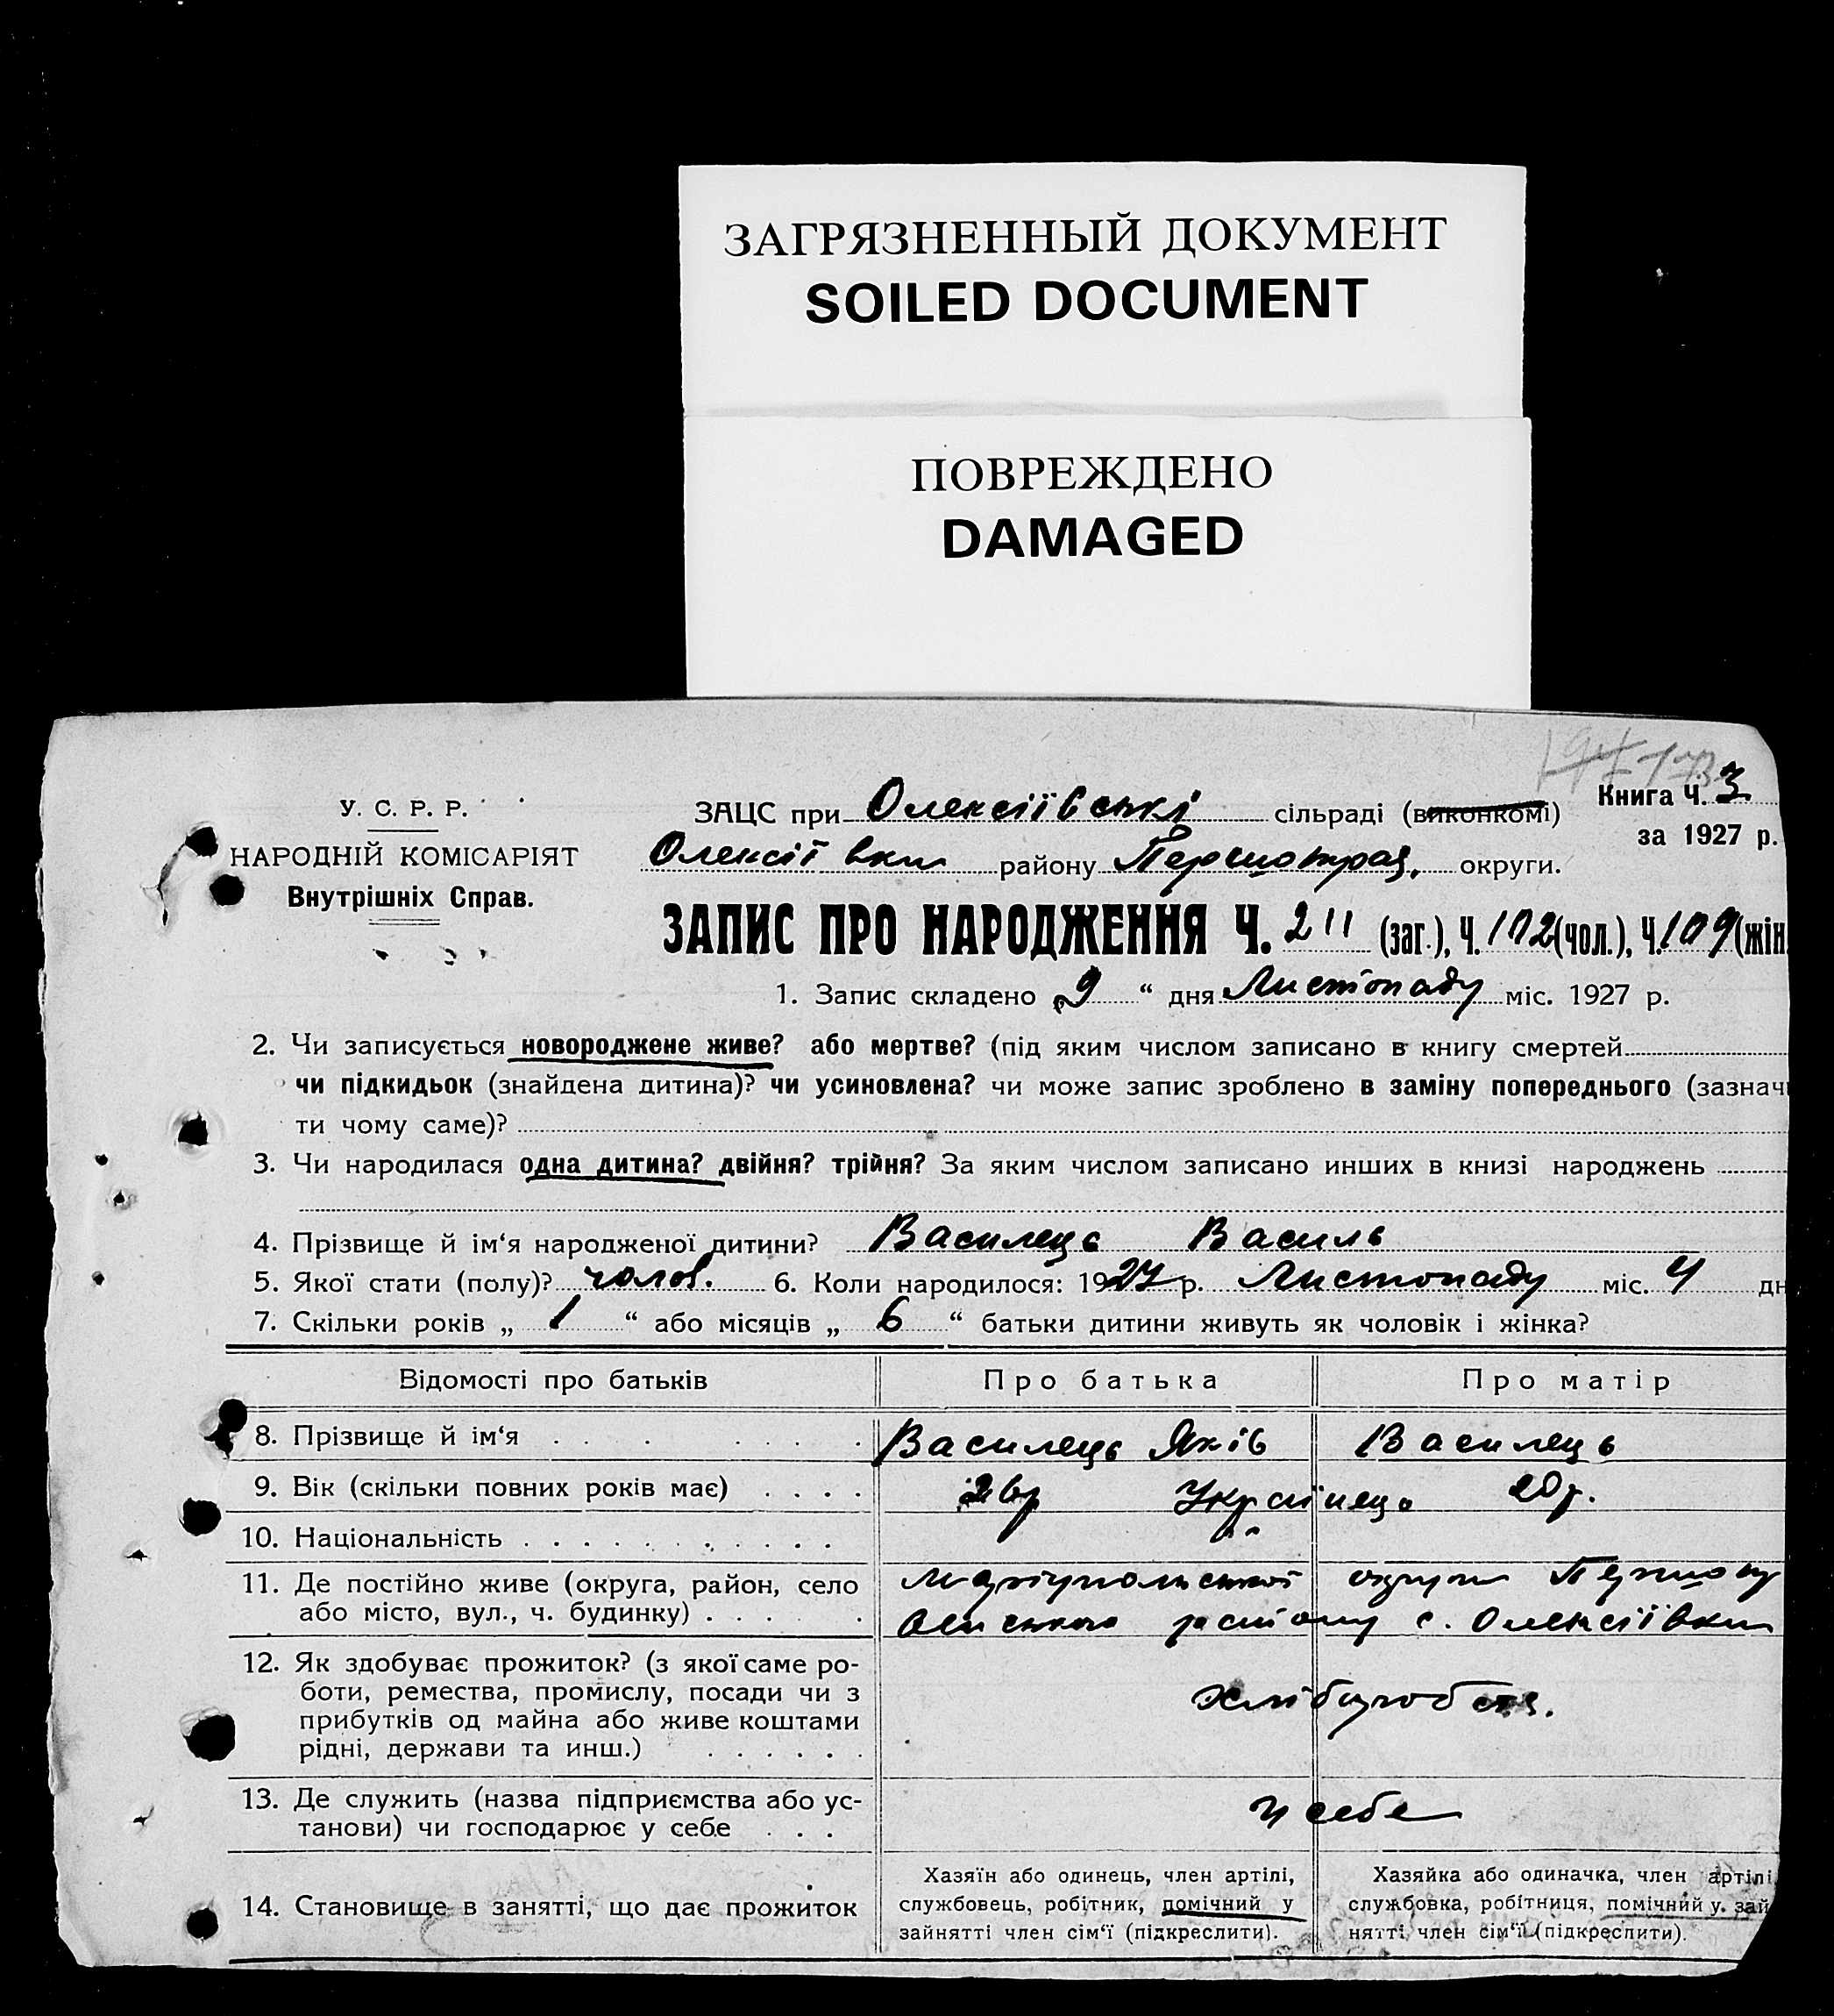 ЗАГРЯЗНЕННЫЙ ДОКУМЕНТ
SOILED DOCUMENT
ПОВРЕЖДЕНО
DAMAGED
У. С. Р. Р.
НАРОДНІЙ КОМІСАРІЯТ
Внутрішніх Справ.
Книга Ч. 3
за 1927 р.
ЗАЦС при Олексіївські сільраді (виконкомі)
Олексіївки району округи.
ЗАПИС ПРО НАРОДЖЕННЯ Ч. 211 (заг.), Ч. 102 (чол.), Ч. 109 (жін.
1. Запис складено „9“ дня Листопаду міс. 1927 р.
2. Чи записується новороджене живе? або мертве? (під яким числом записано в книгу смертей
чи підкидьок (знайдена дитина)? чи усиновлена? чи може запис зроблено в заміну попереднього (зазначи
ти чому саме)?
3. Чи народилася одна дитина? двійня? трійня? За яким числом записано инших в книзі народжень
4. Прізвище й ім‘я народженої дитини? Василець Василь
5. Якої стати (полу)? чолов. 6. Коли народилося: 1927 р. Листопаду міс. 4 дн
7. Скільки років „ 1 “ або місяців „ 6 “ батьки дитини живуть як чоловік і жінка?
Відомості про батьків Про батька Про матір
8. Прізвище й ім‘я Василець Яків Василець
9. Вік (скільки повних років має) 26р Українець 20р.
10. Національність
11. Де постійно живе (округа, район, село Маріупольської округи
або місто, вул., ч. будинку) району с. Олексіївки
12. Як здобуває прожиток? (з якої саме ро-
боти, ремества, промислу, посади чи з
прибутків од майна або живе коштами
рідні, держави та инш.)
хлібороб ств.
13. Де служить (назва підприємства або ус-
танови) чи господарює у себе
у себе
14. Становище в занятті, що дає прожиток
Хазяїн або одинець, член артілі,
службовець, робітник, помічний у
зайнятті член сім‘ї (підкреслити).
Хазяйка або одиначка, член артілі
службовка, робітниця, помічний у зай
нятті член сім‘ї (підкреслити).